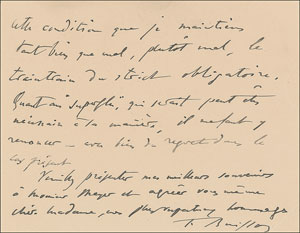 cette condition que je maintiens
tant bien que mal, plutôt mal, le
traintrain du strict obligatoire.
Quant au "superflu", qui serait peut être
nécessaire à la manière, il me faut y
renoncer — avec bien du regret dans le
cas présent.
Veuillez présenter mes meilleurs souvenirs
à monsieur Mayer et agréer vous même
chère madame, mes plus respectueux hommages
F. Buisson